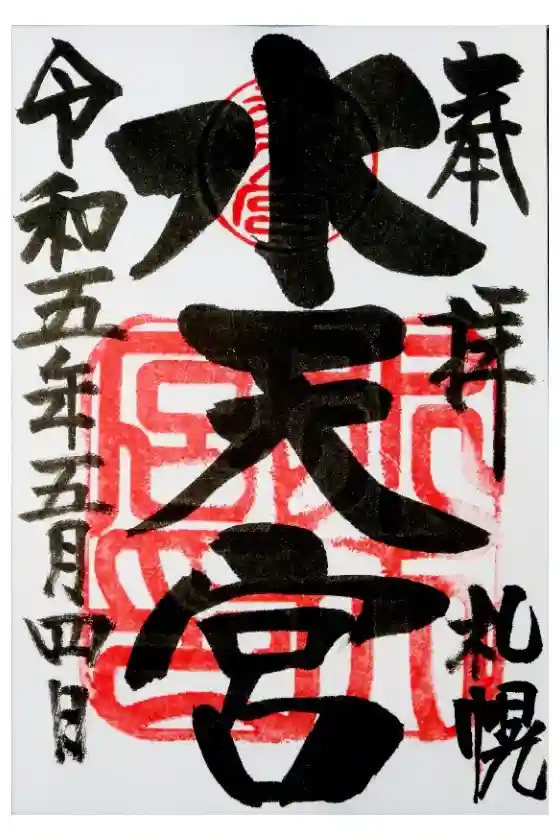 奉拝 札幌
水天宮
令和五年五月四日